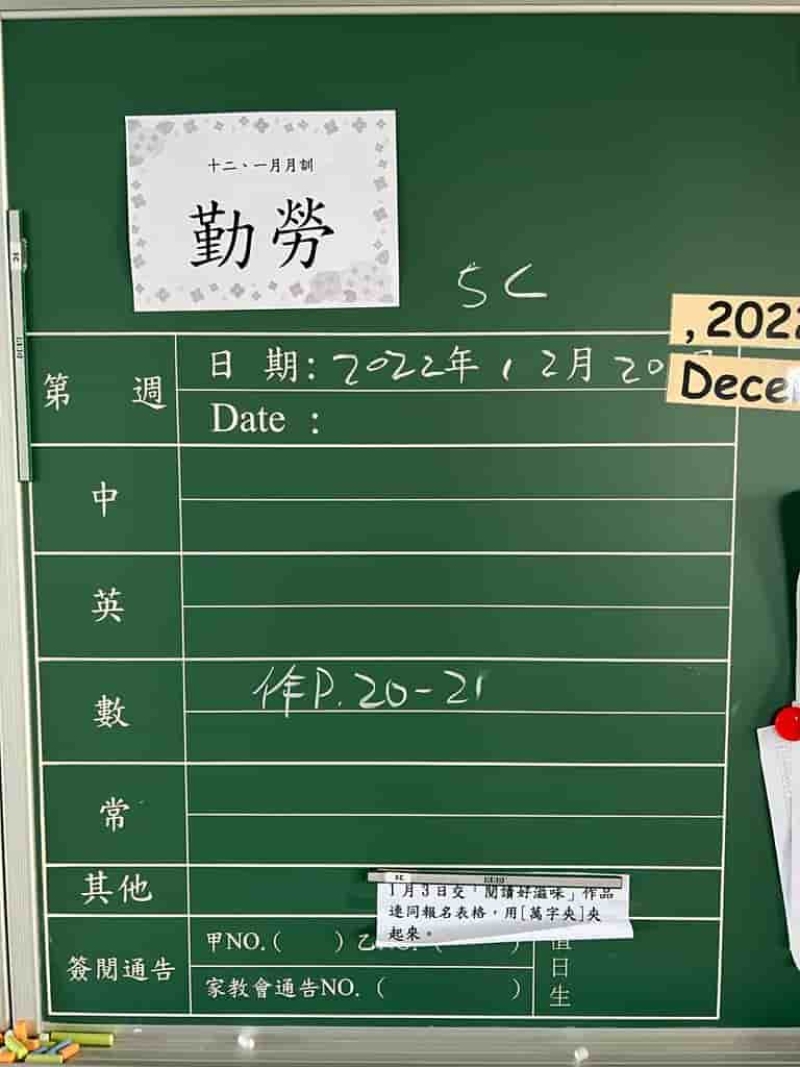 十二、一月月訓
勤勞
5C
, 2022
第 週
日 期: 2022年 12月 20
Decem
Date :
中
英
數
作P.20-21
常
其他
1月3日交「閱讀好滋味」作品
連同報名表格，用[萬字夾]夾
起來。
簽閱通告
甲NO.( ) 乙NO. ( )
家教會通告NO. ( )
值日生